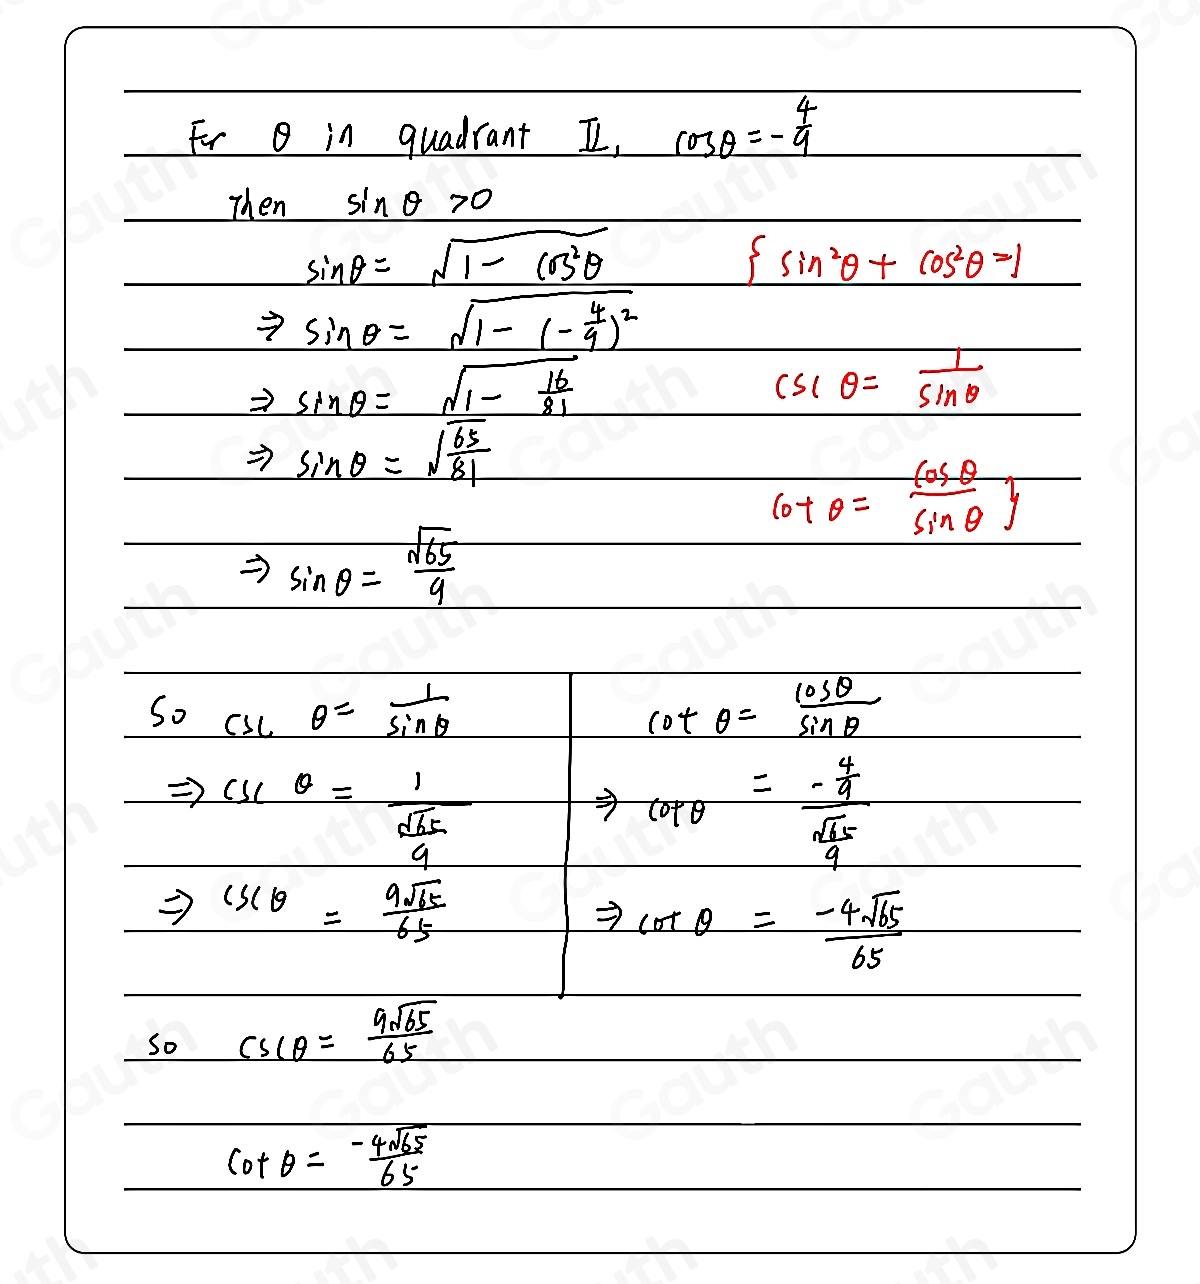 For θ in quadrant II, cosθ = -4/9
Then sin θ >0
sinθ = √(1 - cos²θ) { sin²θ + cos²θ = 1
⇒ sin θ = √(1 - (-4/9)²)
⇒ sinθ = √(1 - 16/81) csc θ = 1/sinθ
⇒ sinθ = √(65/81)
cot θ = cosθ/sinθ }
⇒ sinθ = √65/9
So csc θ = 1/sinθ
⇒ csc θ = 1/(√65/9)
⇒ cscθ = 9√65/65
cot θ = cosθ/sinθ
⇒ cotθ = (-4/9)/(√65/9)
⇒ cot θ = -4√65/65
so cscθ = 9√65/65
cot θ = -4√65/65
Gauth